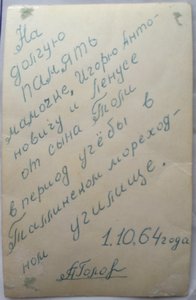 На
долгую
память
мамочке, Игорю Анто-
новичу и Ленусе
от сына Толи
в период учёбы в
Таллинском мореход-
ном училище.
1.10.64 года